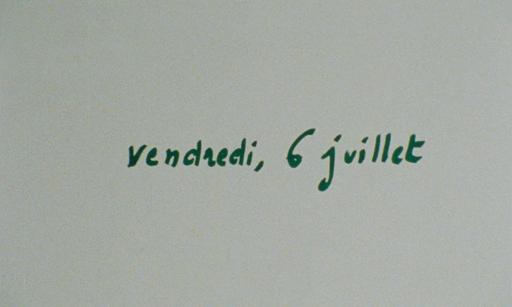 vendredi, 6 juillet